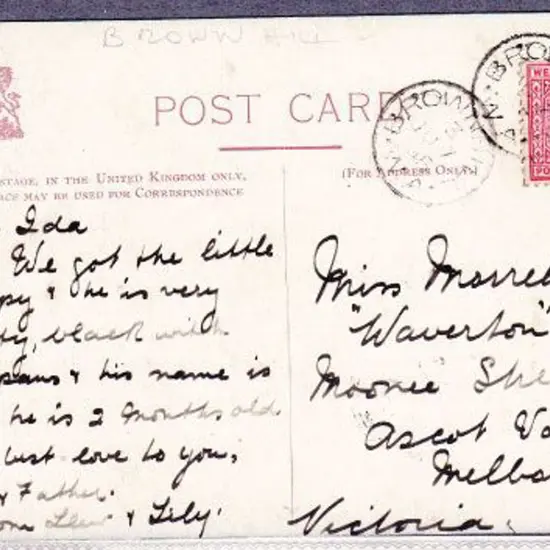 BROWN HILL
POST CARD
STAGE, IN THE UNITED KINGDOM ONLY,
ACE MAY BE USED FOR CORRESPONDENCE
(FOR ADDRESS ONLY)
BROWN
BROW
WE
PO
Ida
We got the little
ppy & he is very
ty, black with
paws & his name is
he is 2 months old.
best love to you,
& Father.
& Lily.
Miss Morre
"Waverton"
Moonee
Ascot Va
Melbo
Victoria